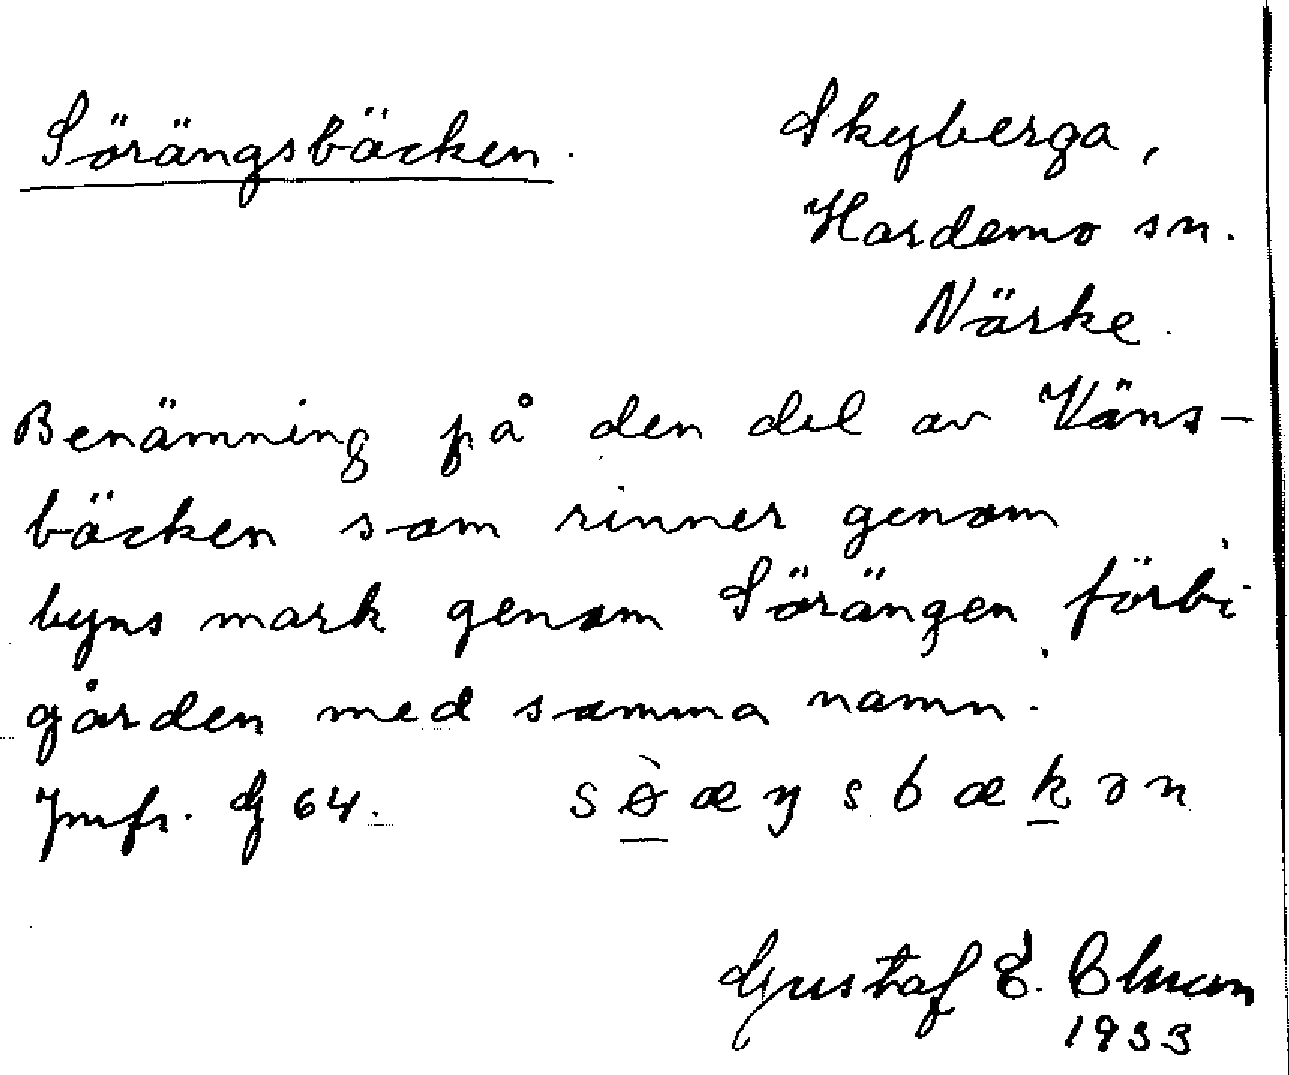 Sörängsbäcken.
Skyberga,
Hardemo sn.
Närke.
Benämning på den del av Väns-
bäcken som rinner genom
byns mark genom Sörängen förbi
gården med samma namn.
Jmfr. G 64. sø̀æŋsbækən
Gustaf E.
1933